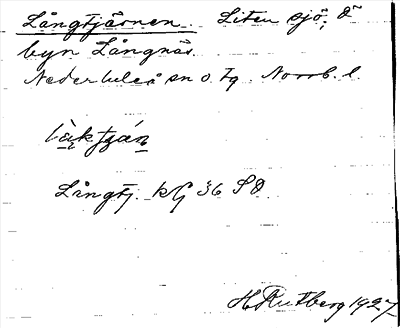 Långtjärnen. Liten sjö, Ö
byn Långnäs.
Nederluleå sn o. tg. Norrb. l.
Långtj. kG 36 SO
H. Rutberg 1927